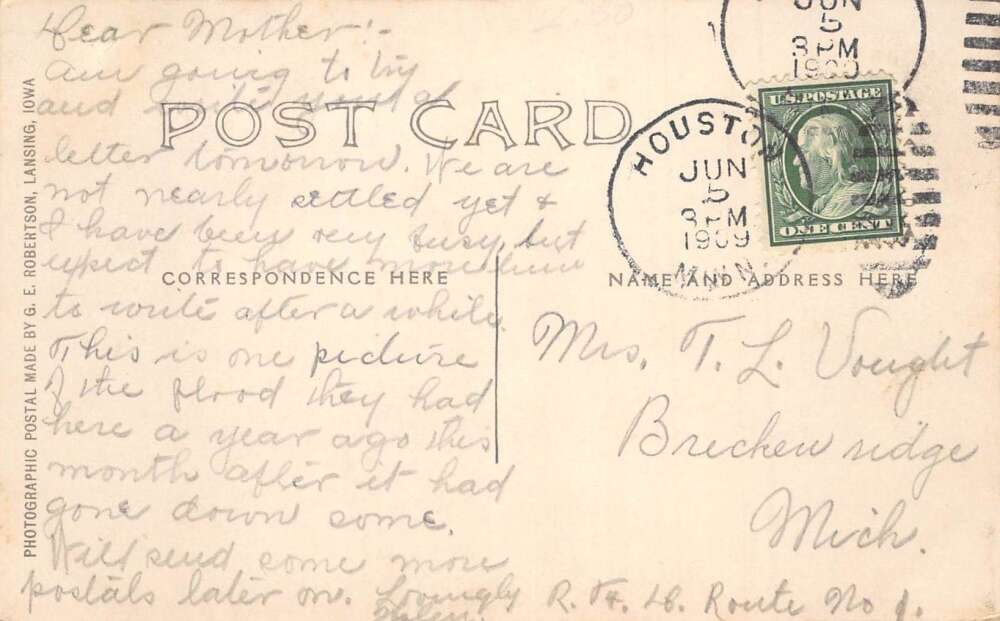 Dear Mother:-
Am going to try
and write you a
letter tomorrow. We are
not nearly settled yet &
I have been very busy, but
expect to have more time
to write after a while.
This is one picture
of the flood they had
here a year ago this
month after it had
gone down some.
Will send some more
postals later on. Lovingly
Helen.
POST CARD
CORRESPONDENCE HERE
NAME AND ADDRESS HERE
PHOTOGRAPHIC POSTAL MADE BY G. E. ROBERTSON, LANSING, IOWA
JUN
5
3 PM
1909
HOUSTON
JUN
5
3 PM
1909
MINN.
U.S. POSTAGE
ONE CENT
Mrs. T. L. Vought
Breckenridge
Mich.
R. F. D. Route No 1.